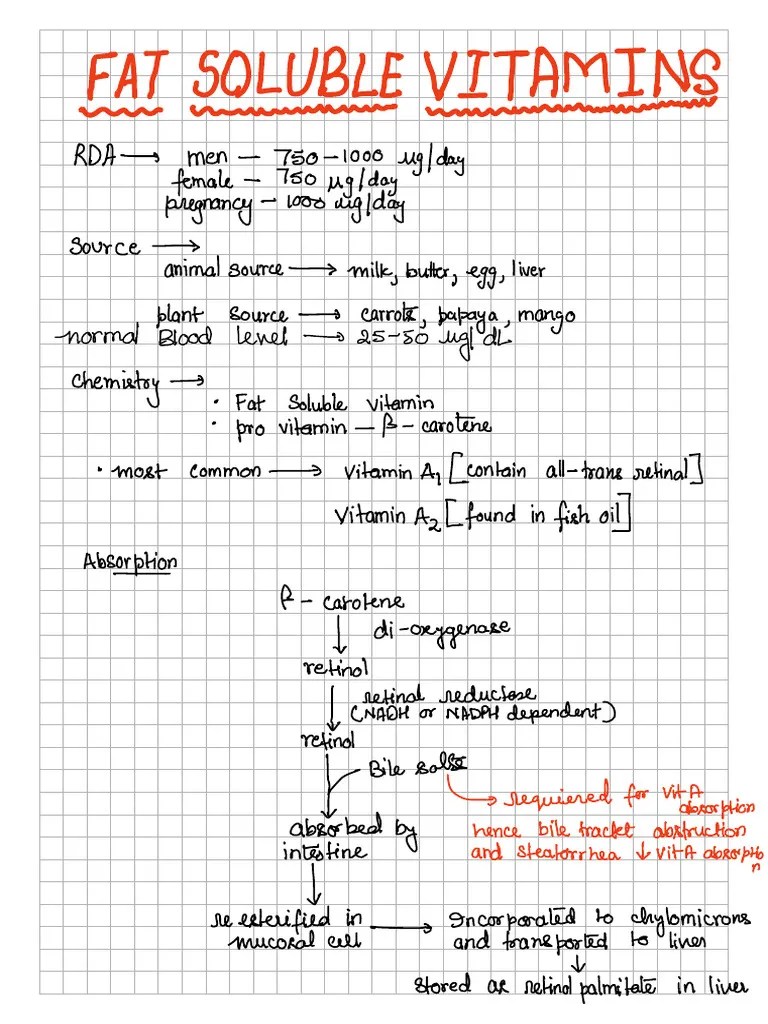 FAT SOLUBLE VITAMINS
RDA → men — 750-1000 μg/day
female — 750 μg/day
pregnancy — 1000 μg/day
Source →
animal source → milk, butter, egg, liver
plant source → carrots, papaya, mango
normal Blood level → 25-50 μg/dL
Chemistry →
· Fat Soluble vitamin
· pro vitamin — β - carotene
· most common → Vitamin A₁ [contain all-trans retinal]
Vitamin A₂ [found in fish oil]
Absorption
β - carotene
di-oxygenase
retinol
retinal reductose
(NADH or NADPH dependent)
retinol
Bile salts
→ requiered for vit A
absorption
absorbed by
intestine
hence bile tracket obstruction
and steatorrhea ↓ vit A absorptio
n
re esterified in
mucosal cell
→ Incorporated to chylomicrons
and transported to liver
stored as retinol palmitate in liver